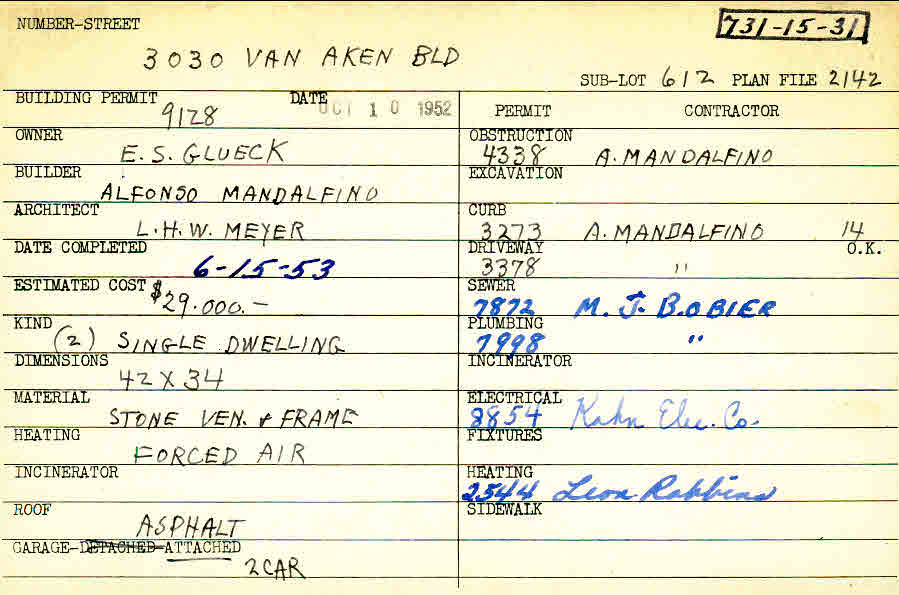 NUMBER-STREET
731-15-31
3030 VAN AKEN BLD
SUB-LOT 612 PLAN FILE 2142
BUILDING PERMIT 9128 DATE OCT 10 1952
PERMIT CONTRACTOR
OWNER E. S. GLUECK
OBSTRUCTION 4338 A. MANDALFINO
BUILDER ALFONSO MANDALFINO
EXCAVATION
ARCHITECT L. H. W. MEYER
CURB 3273 A. MANDALFINO 14
DATE COMPLETED 6-15-53
DRIVEWAY 3378 " O.K.
ESTIMATED COST $29.000.-
SEWER 7872 M. J. BOBIER
KIND (2) SINGLE DWELLING
PLUMBING 7998 "
DIMENSIONS 42 X 34
INCINERATOR
MATERIAL STONE VEN. & FRAME
ELECTRICAL 8854 Kahn Elec. Co.
HEATING FORCED AIR
FIXTURES
INCINERATOR
HEATING 2544 Leon Robbins
ROOF ASPHALT
SIDEWALK
GARAGE-DETACHED-ATTACHED
2 CAR